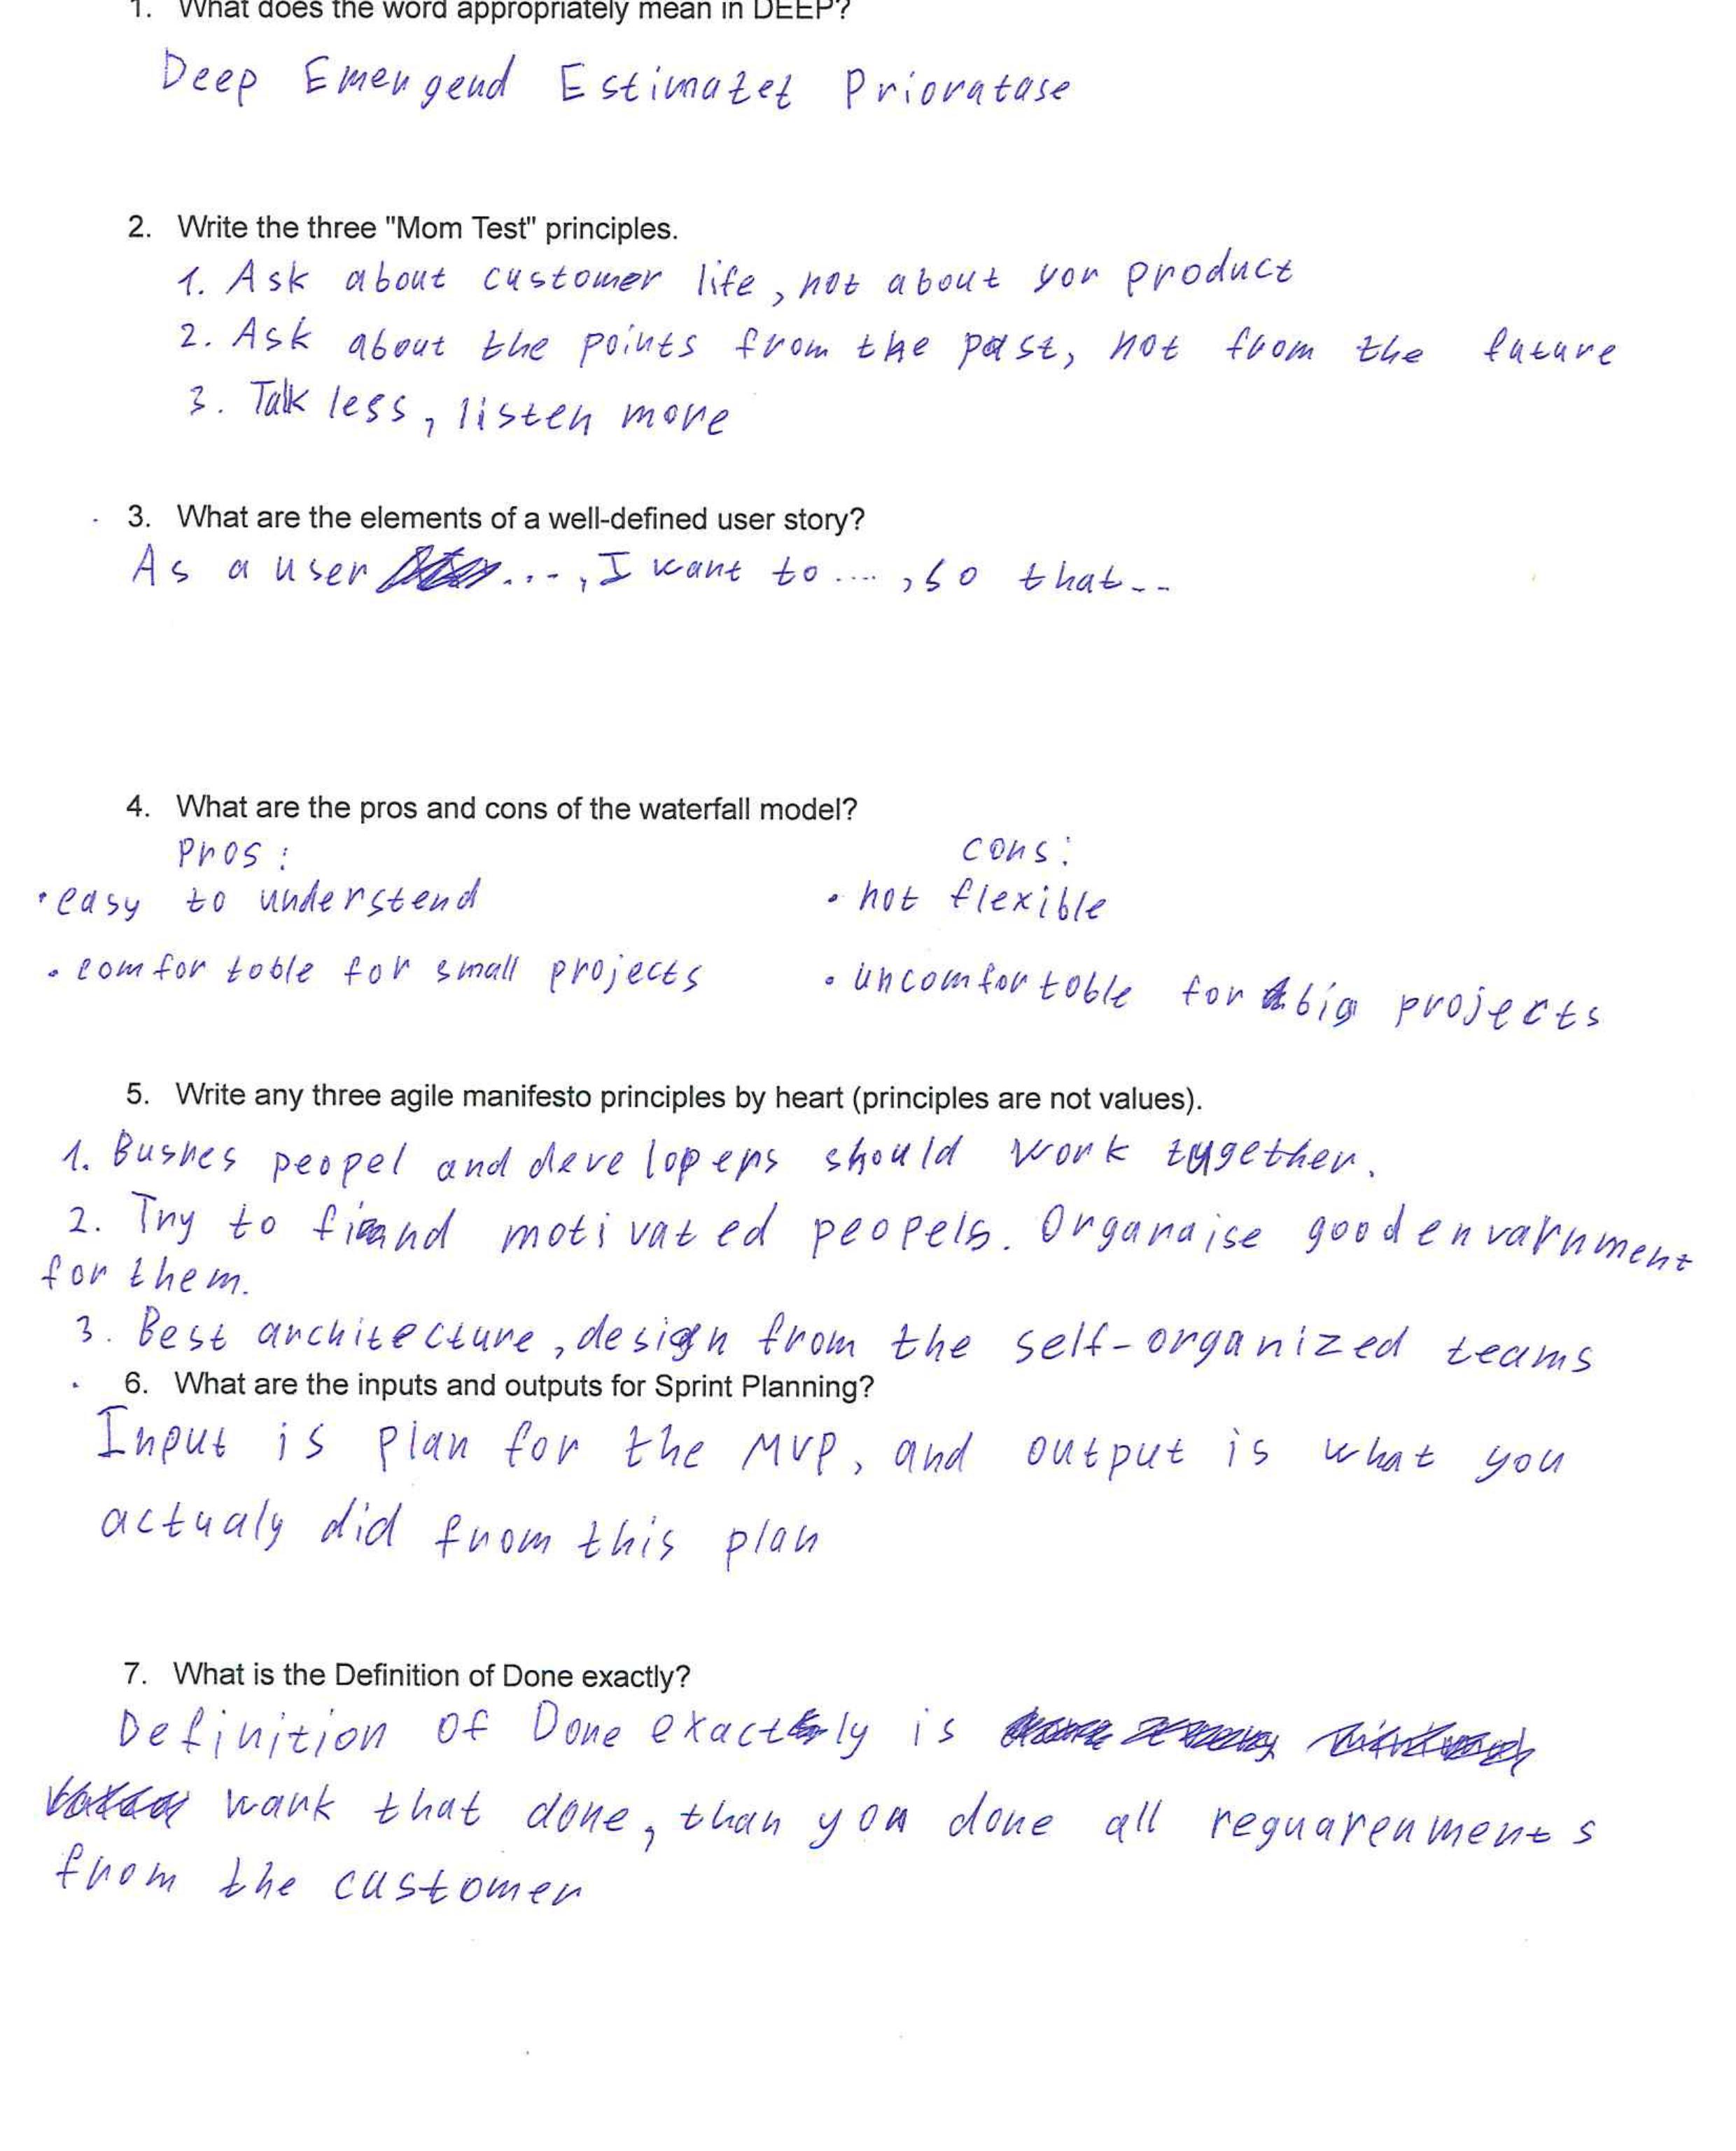 1. What does the word appropriately mean in DEEP?
Deep Emengend Estimatet Prioratase
2. Write the three "Mom Test" principles.
1. Ask about customer life, not about yor product
2. Ask about the points from the past, not from the future
3. Talk less, listen more
3. What are the elements of a well-defined user story?
As a user ..., I want to ...., so that--
4. What are the pros and cons of the waterfall model?
Pros: cons:
• easy to understend • not flexible
• comfortoble for small projects • uncomfortoble for big projects
5. Write any three agile manifesto principles by heart (principles are not values).
1. Busnes peopel and developers should work tygether.
2. Try to find motivated peopels. Organaise good envarnment
for them.
3. Best architecture, design from the self-organized teams
6. What are the inputs and outputs for Sprint Planning?
Input is plan for the MVP, and output is what you
actualy did from this plan
7. What is the Definition of Done exactly?
Definition of Done exactly is
wark that done, than you done all reguarenments
from the customer